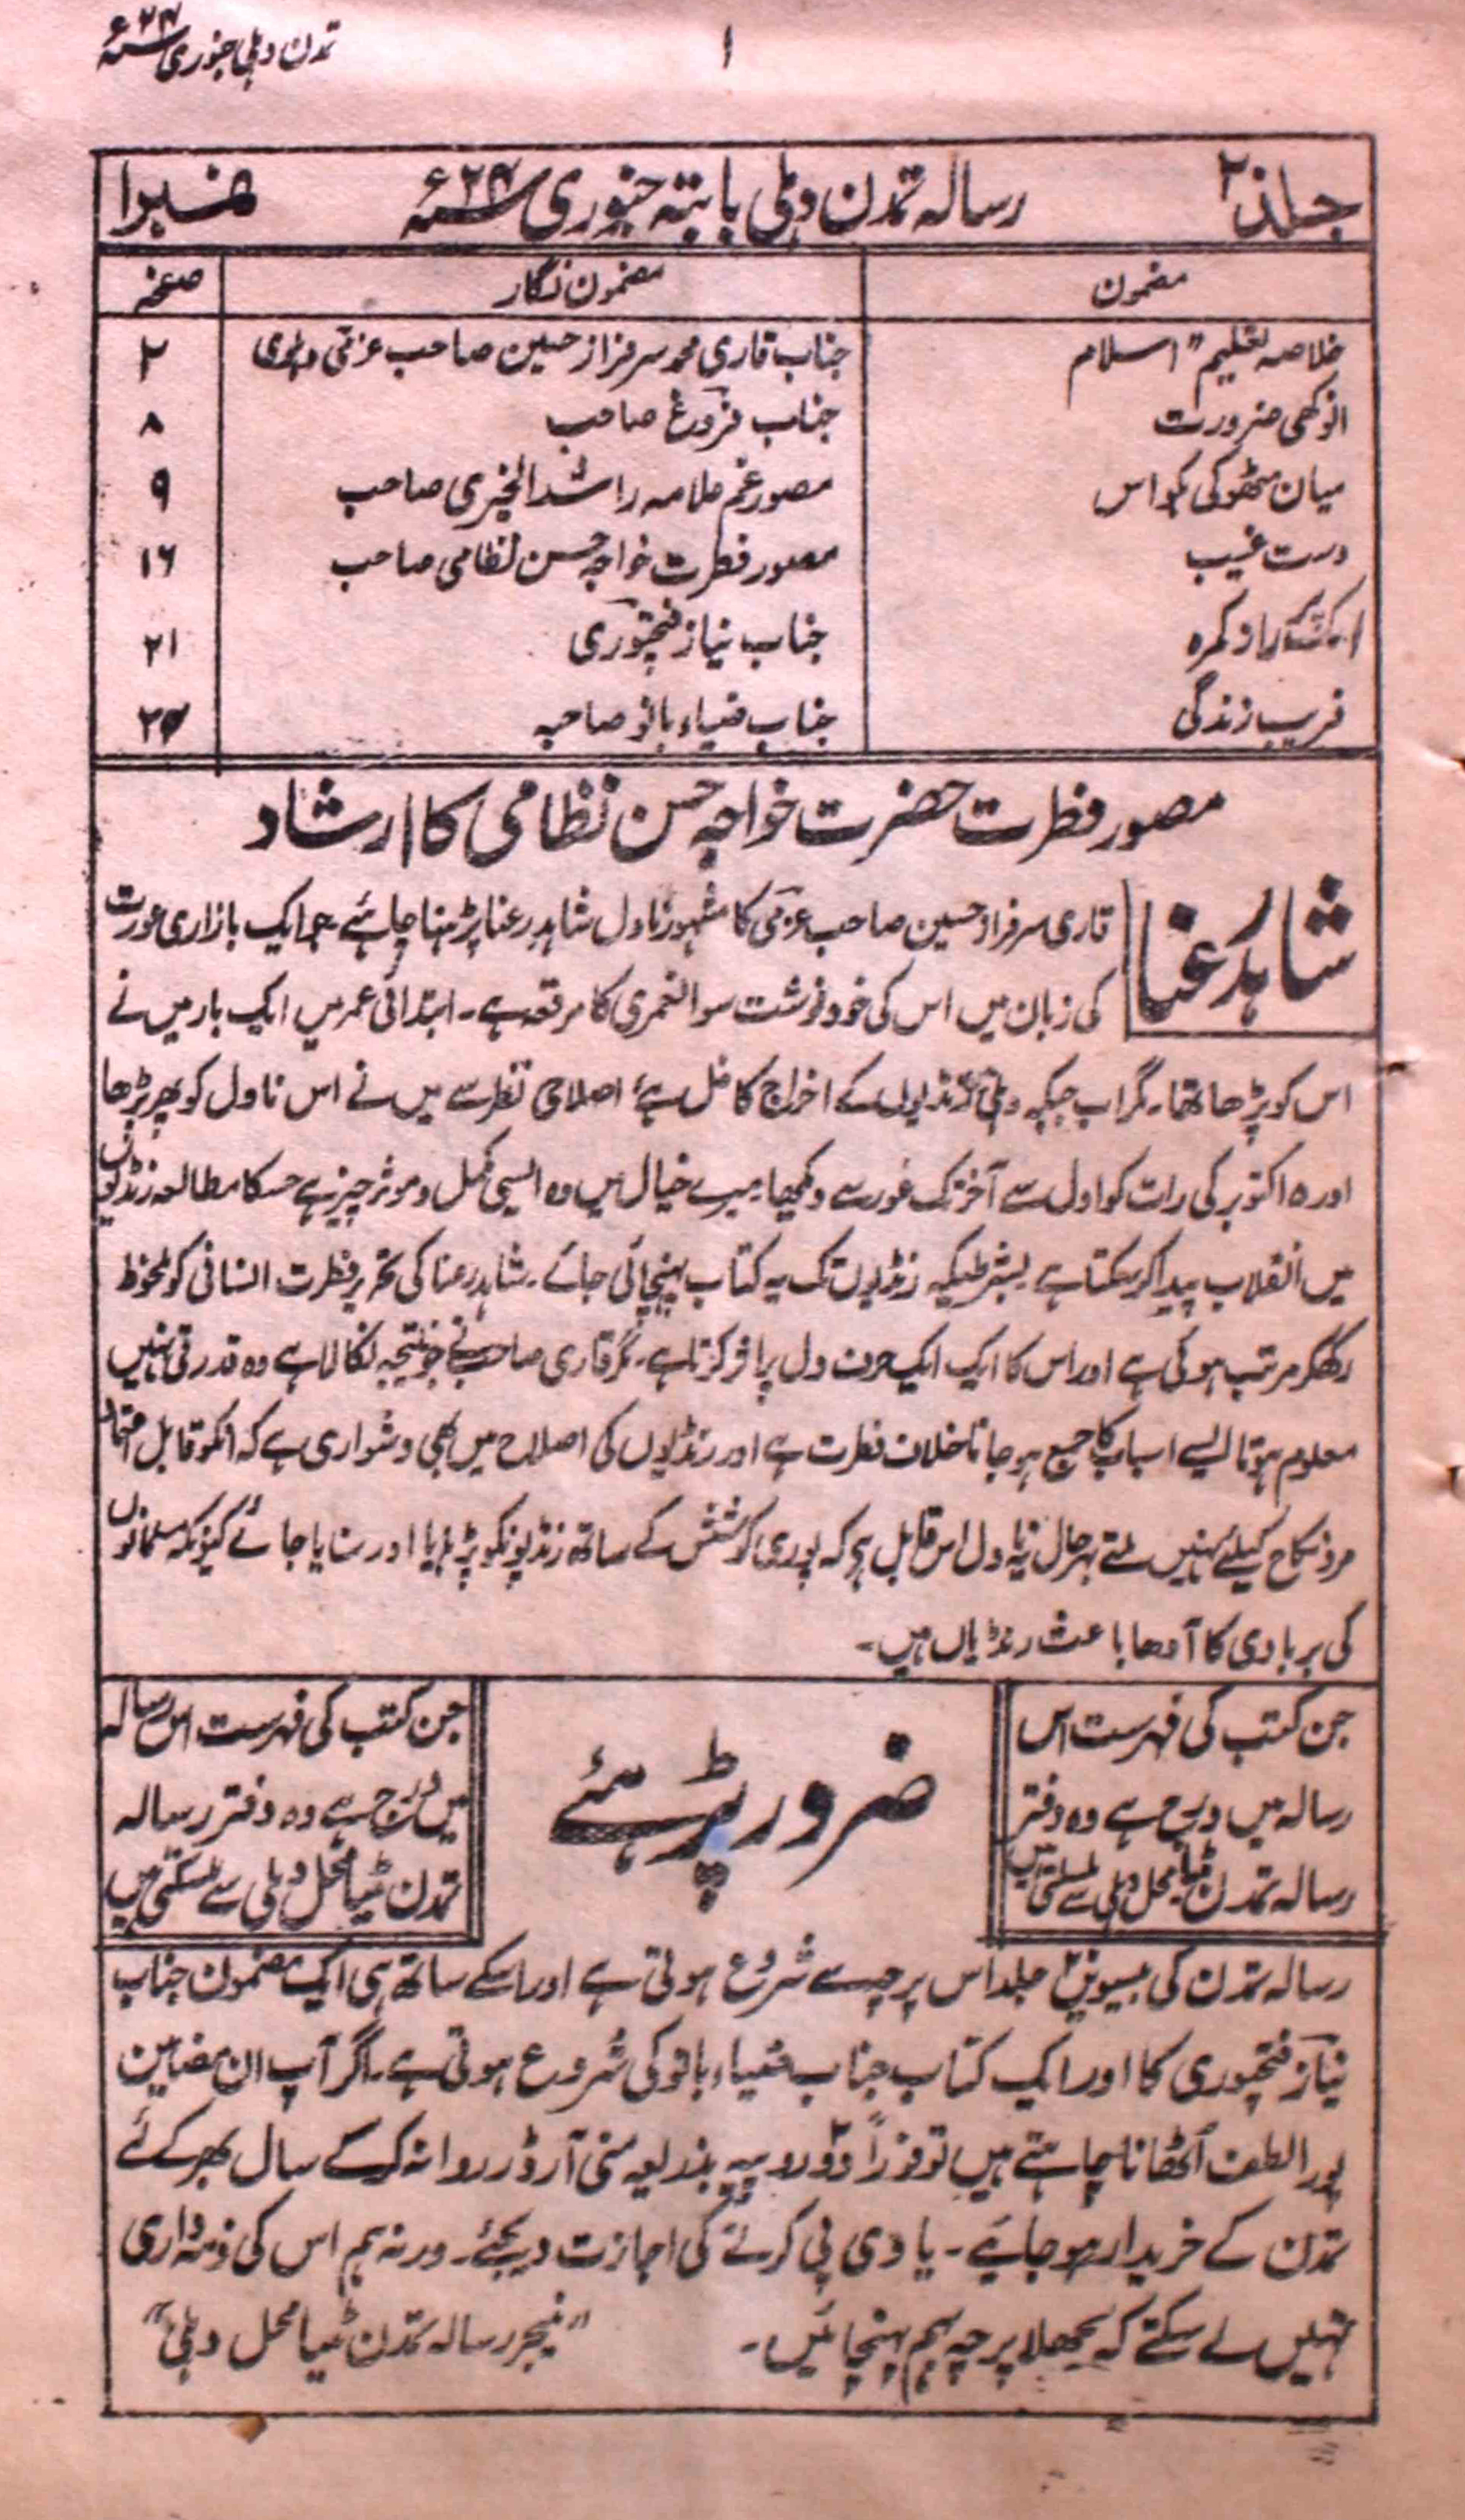 تمدن دہلی جنوری ۲۴ء
۱
جلد ۲۰ رسالہ تمدن دہلی بابتہ جنوری ۲۴ء نمبر۱
مضمون مضمون نگار صفحہ
خلاصہ تعلیم اسلام جناب قاری محمد سرفراز حسین صاحب عزمی دہلوی ۲
انوکھی ضرورت جناب فروغ صاحب ۸
میاں مٹھو کی بکواس مصور غم علامہ راشد الخیری صاحب ۹
دست غیب مصور فطرت خواجہ حسن نظامی صاحب ۱۶
جناب نیاز فتحپوری ۲۱
فریب زندگی جناب ضیاء بانو صاحبہ ۲۴
مصور فطرت حضرت خواجہ حسن نظامی کا ارشاد
شاہد رعنا
قاری سرفراز حسین صاحب عزمی کا مشہور ناول شاہد رعنا پڑہنا چاہئے جو ایک بازاری عورت
کی زبان میں اس کی خود نوشت سوانحعمری کا مرقعہ ہے۔ ابتدائی عمر میں ایک بار میں نے
اس کو پڑھا تھا۔ مگر اب جبکہ دہلی رنڈیوں کے اخراج کا غل ہے، اصلاحی نظر سے میں نے اس ناول کو پھر پڑھا
اور ۵ اکتوبر کی رات کو اول سے آخر تک غور سے دیکھا۔ میرے خیال میں وہ ایسی مکمل و موثر چیز ہے جسکا مطالعہ رنڈیوں
میں انقلاب پیدا کر سکتا ہے بشرطیکہ رنڈیوں تک یہ کتاب پہنچائی جائے۔ شاہد رعنا کی تحریر فطرت انسانی کو ملحوظ
رکھکر مرتب ہوئی ہے اور اس کا ایک ایک حرف دل پر اثر کرتا ہے۔ مگر قاری صاحب نے جو نتیجہ نکالا ہے وہ قدرتی نہیں
معلوم ہوتا ایسے اسباب کا جمع ہو جانا خلاف فطرت ہے اور رنڈیوں کی اصلاح میں یہی دشواری ہے کہ انکو قابل اعتماد
مرد نکاح کیلئے نہیں ملتے بہرحال یہ ناول اس قابل ہے کہ پوری کوشش کے ساتھ رنڈیونکو پڑہایا اور سنایا جائے کیونکہ مسلمانوں
کی بربادی کا آدھا باعث رنڈیاں ہیں۔
جن کتب کی فہرست اس
رسالہ میں درج ہے وہ دفتر
رسالہ تمدن مٹیا محل دہلی سے ملسکتی ہیں
ضرور پڑہئے
جن کتب کی فہرست اس رسالہ
میں درج ہے وہ دفتر رسالہ
تمدن مٹیا محل دہلی سے ملسکتی ہیں
رسالہ تمدن کی بیسویں جلد اس پرچہ سے شروع ہوتی ہے اور اسکے ساتھ ہی ایک مضمون جناب
نیاز فتحپوری کا اور ایک کتاب جناب ضیاء بانو کی شروع ہوتی ہے۔ اگر آپ ان مضامین
پورا لطف اٹھانا چاہتے ہیں تو فوراً دو روپیہ بذریعہ منی آرڈر روانہ کرکے سال بھر کے لئے
تمدن کے خریدار ہو جایئے۔ یا وی پی کرنے کی اجازت دیجئے۔ ورنہ ہم اس کی ذمہ داری
نہیں لے سکتے کہ پچھلا پرچہ بہم پہنچائیں۔ "منیجر رسالہ تمدن مٹیا محل دہلی"